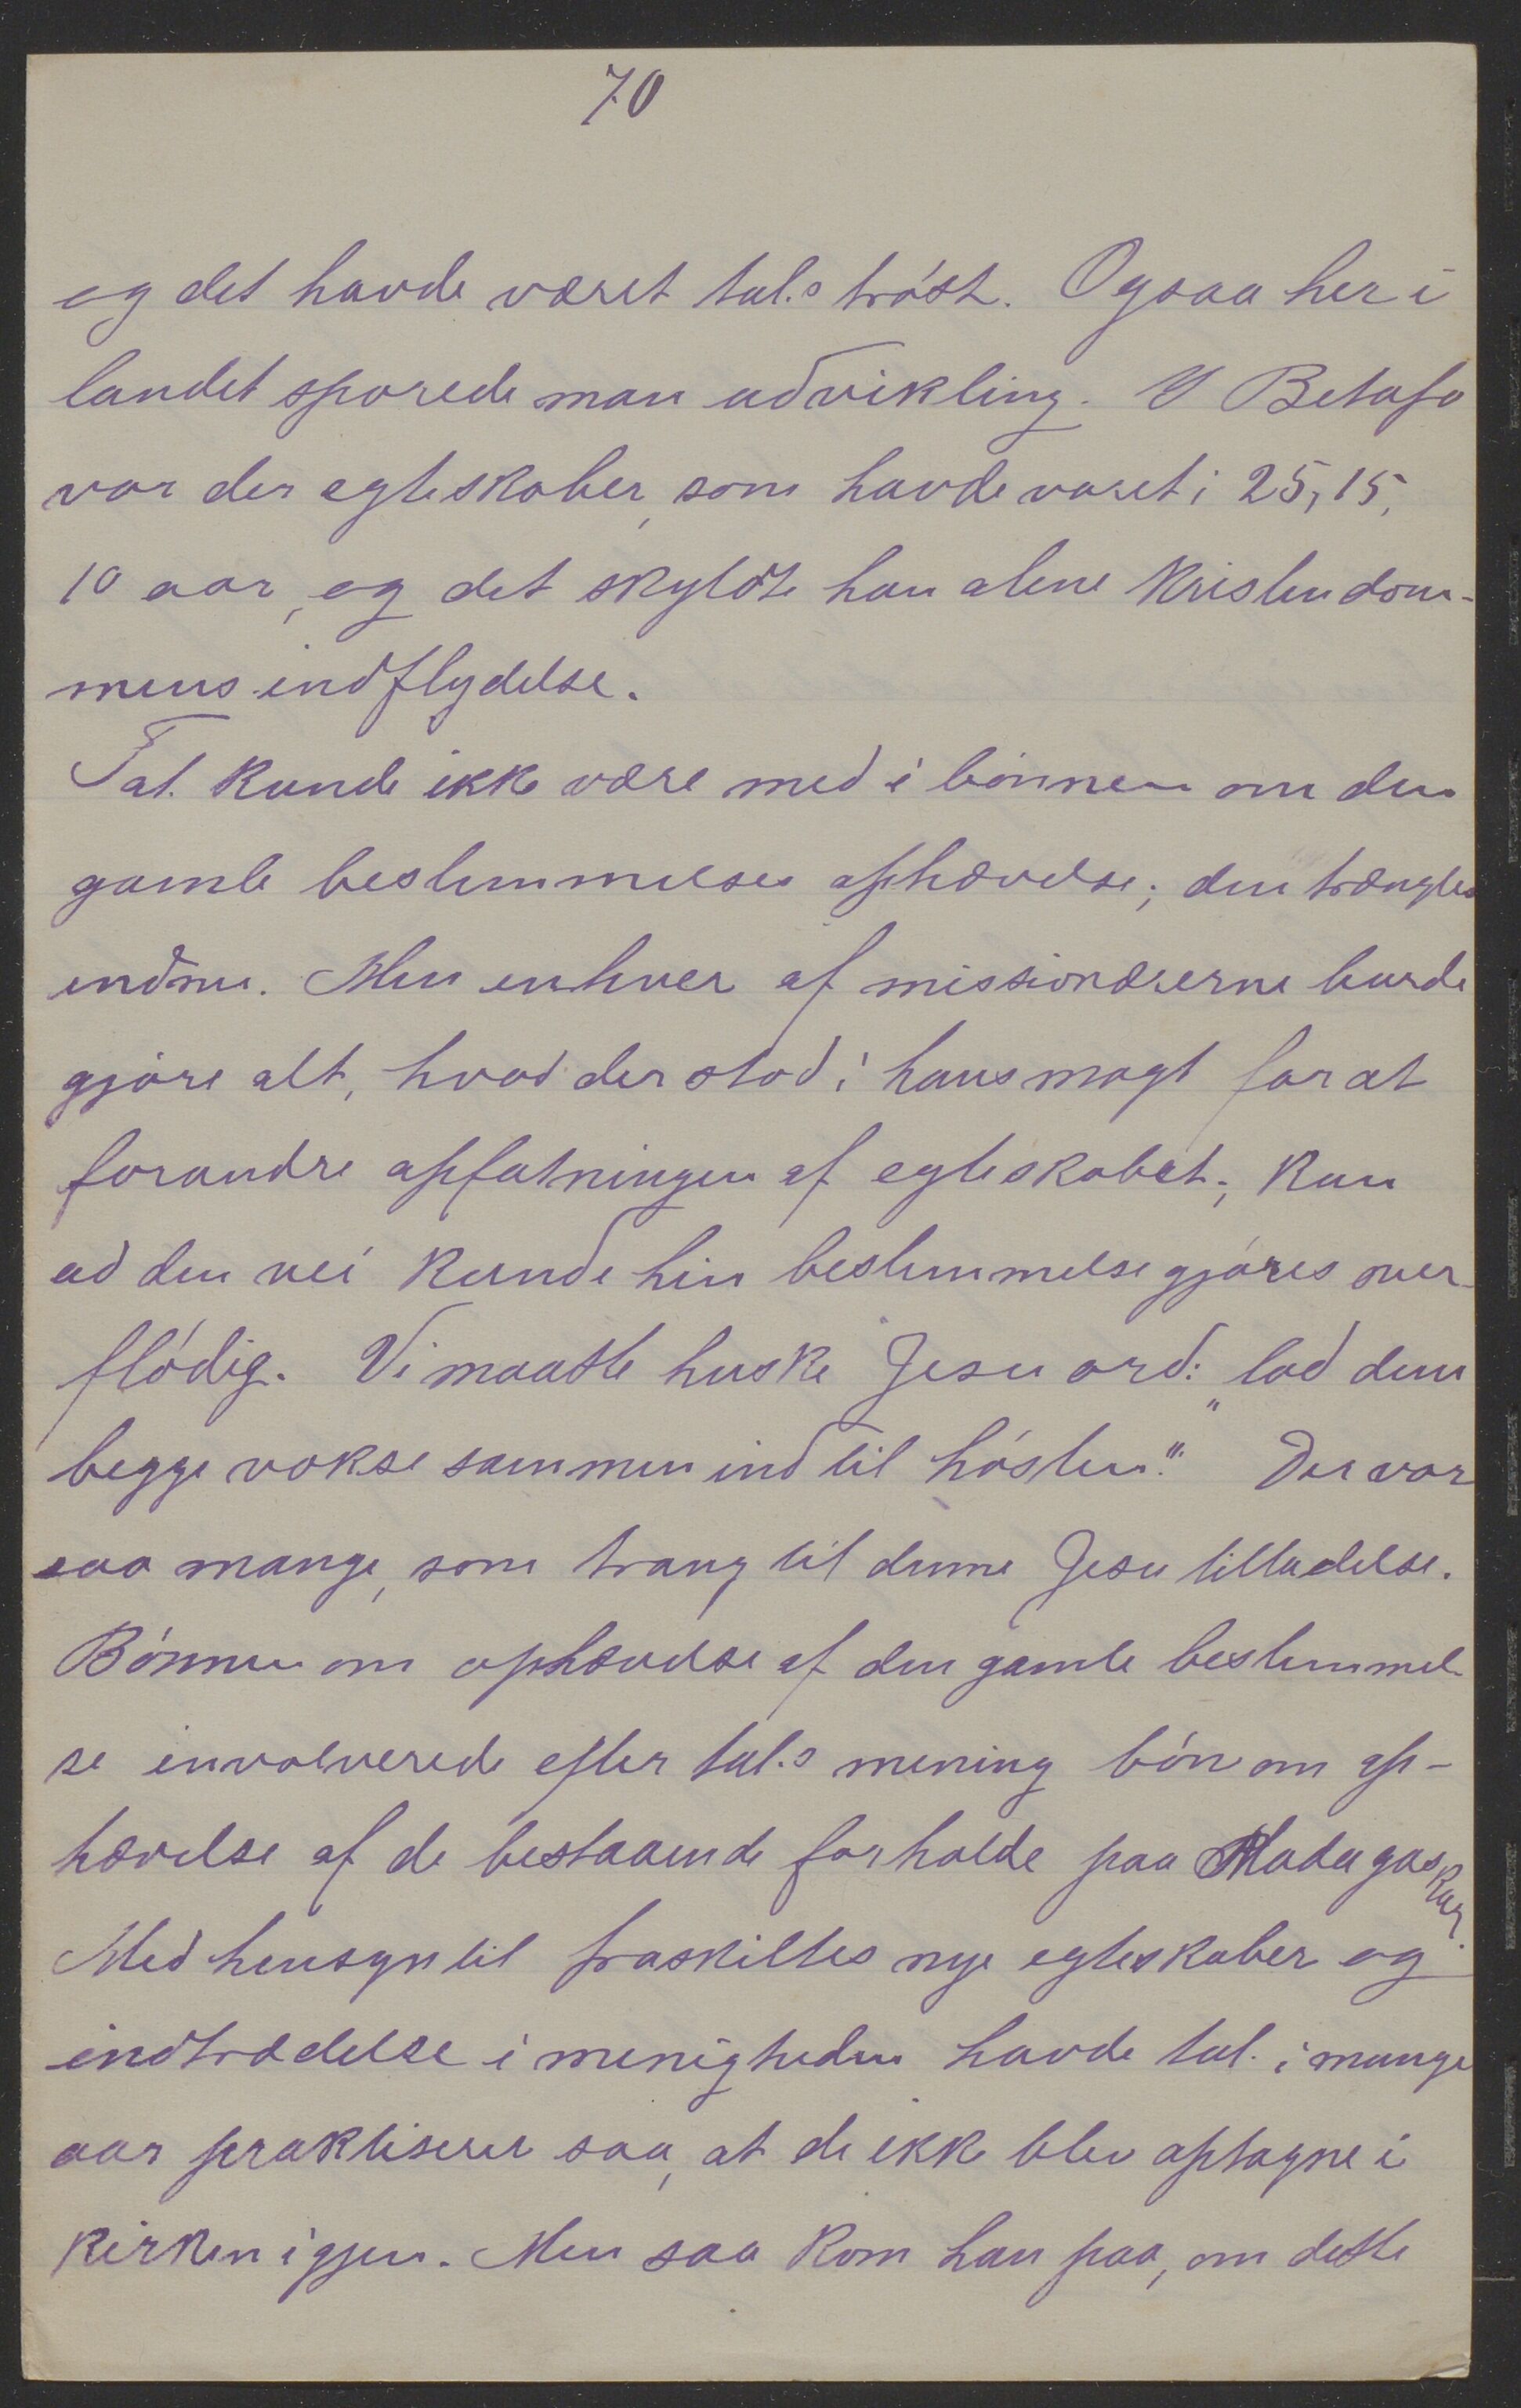 70
og det havde været tal.s trøst. Ogsaa her i
landet sporede man udvikling. I Betafo
var der egteskaber, som havde varet i 25, 15,
10 aar, og det skyldte han alene kristendom-
mens indflydelse.
Tal. kunde ikke være med i bønnen om den
gamle bestemmelses ophævelse; den trængtes
endnu. Men enhver af missionærerne burde
gjøre alt, hvad der stod i hans magt for at
forandre opfatningen af egteskabet; kun
ad den vei kunde hin bestemmelse gjøres over-
flødig. Vi maatte huske Jesu ord: "lad dem
begge vokse sammen indtil høsten." Der var
saa mange, som trang til denne Jesu tilladelse.
Bønnen om ophævelse af den gamle bestemmel-
se involverede efter tal.s mening bøn om op-
hævelse af de bestaaende forholde paa Madagaskar.
Med hensyn til fraskiltes nye egteskaber og
indtrædelse i menigheden havde tal. i mange
aar praktiseret saa, at de ikke blev optagne i
kirken igjen. Men saa kom han paa, om dette